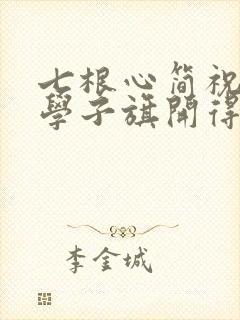 七根心简祝
學子旗開得
李金城